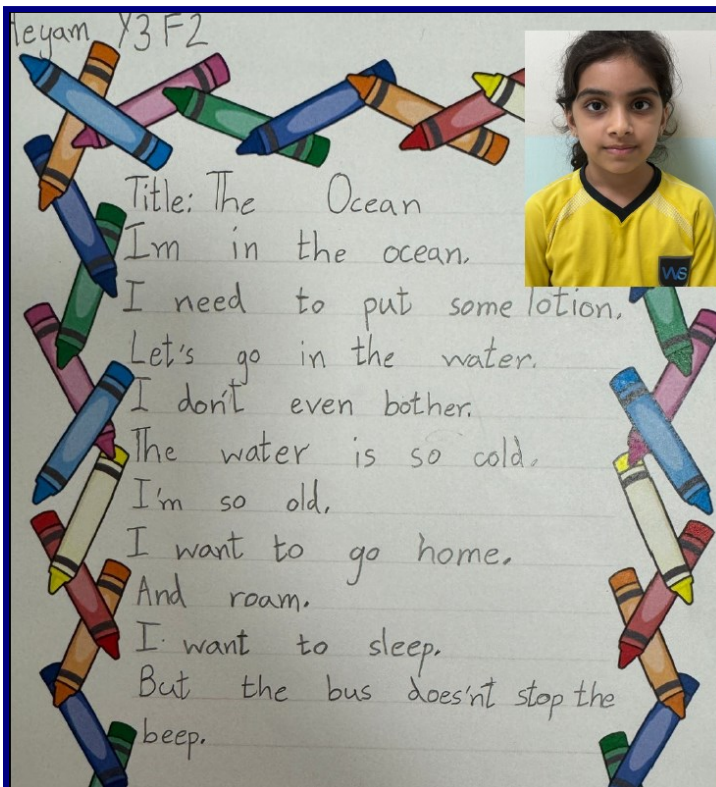 Heyam Y3 F2
Title: The Ocean
Im in the ocean.
I need to put some lotion.
Let's go in the water.
I don't even bother.
The water is so cold.
I'm so old.
I want to go home.
And roam.
I want to sleep.
But the bus does'nt stop the
beep.
WS